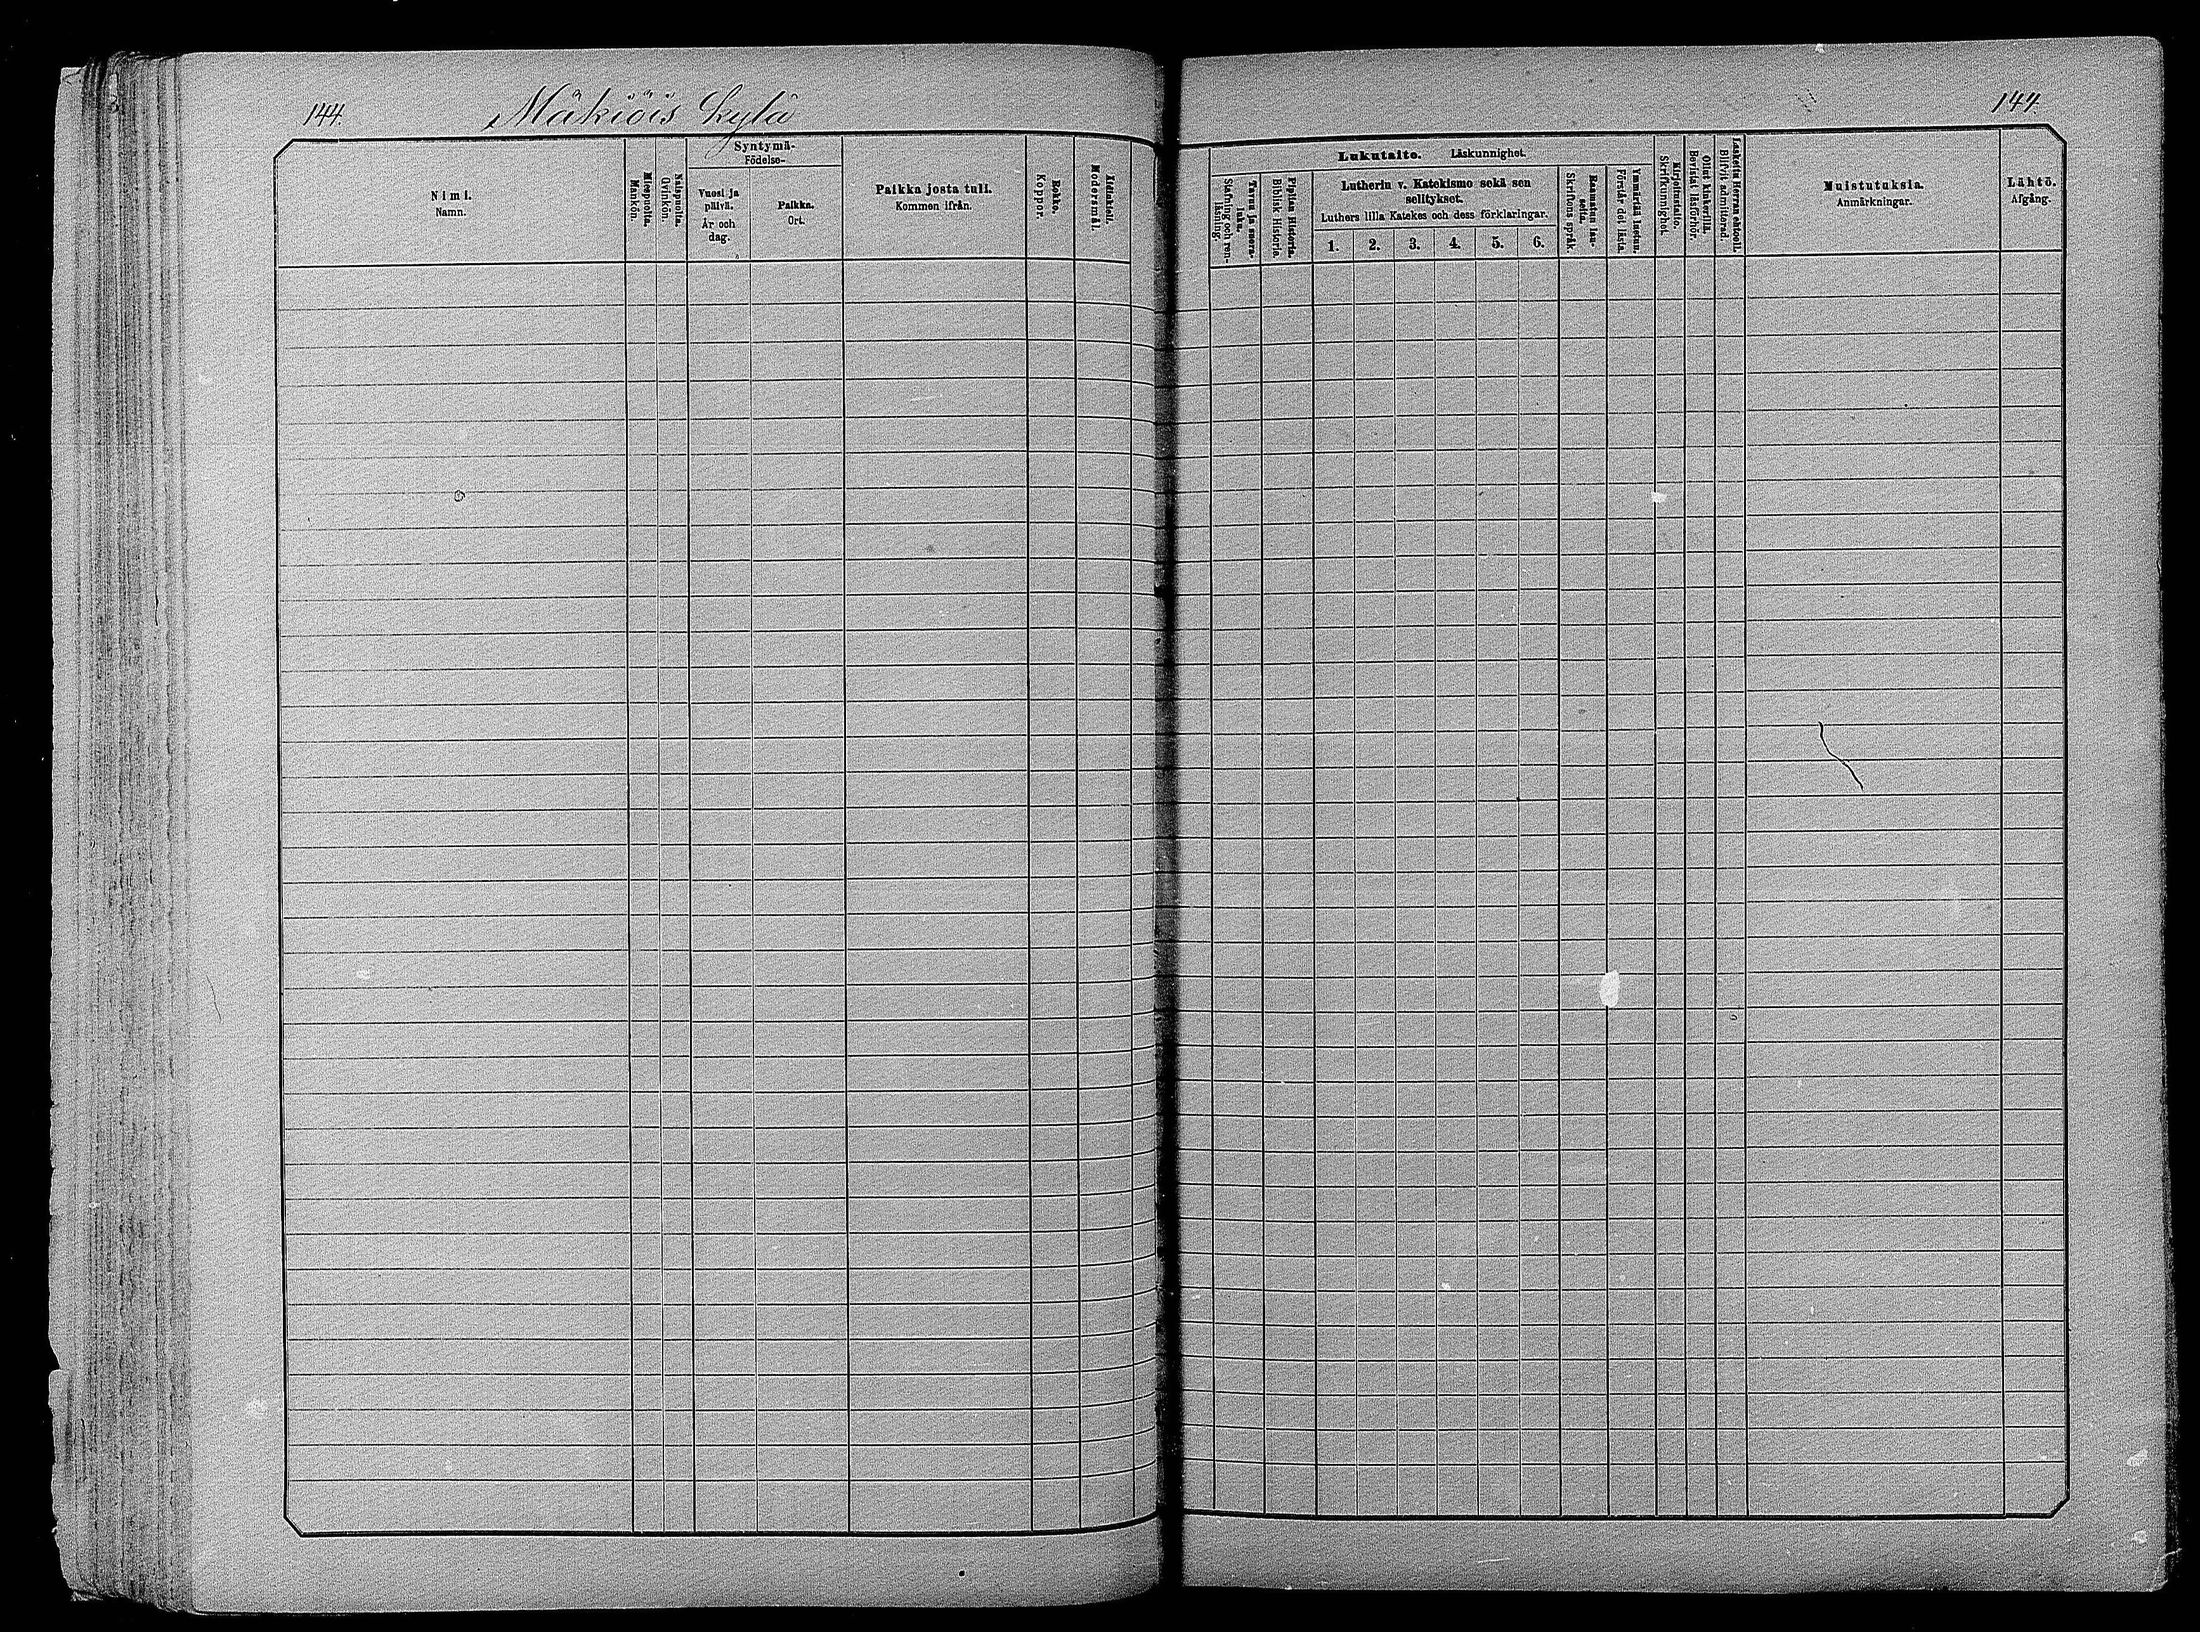 144.
Mäkiöis kylä
144.
Nimi.
Namn.
Miespuolia.
Mankön.
Naispuolia.
Qvinkön.
Syntymä-
Födelse-
Vuosi ja
päivä.
År och
dag.
Paikka.
Ort.
Paikka josta tuli.
Kommen ifrån.
Rokko.
Koppor.
Äidinkieli.
Modersmål.
Lukutaito. Läskunnighet.
Tavuu ja suora-
luku.
Stafning och ren-
läsning.
Piplian Historia.
Biblisk Historia.
Lutherin v. Katekismo sekä sen
selitykset.
Luthers lilla Katekes och dess förklaringar.
1. 2. 3. 4. 5. 6.
Raamatun lau-
seita.
Skriftens språk.
Ymmärtää luetun.
Förstår det lästa.
Kirjoitustaito.
Skrifkunnighet.
Ollut kinkerillä.
Bevistat läsförhör.
Laskettu Herran ehtooll.
Blifvit admitterad.
Muistutuksia.
Anmärkningar.
Lähtö.
Afgång.